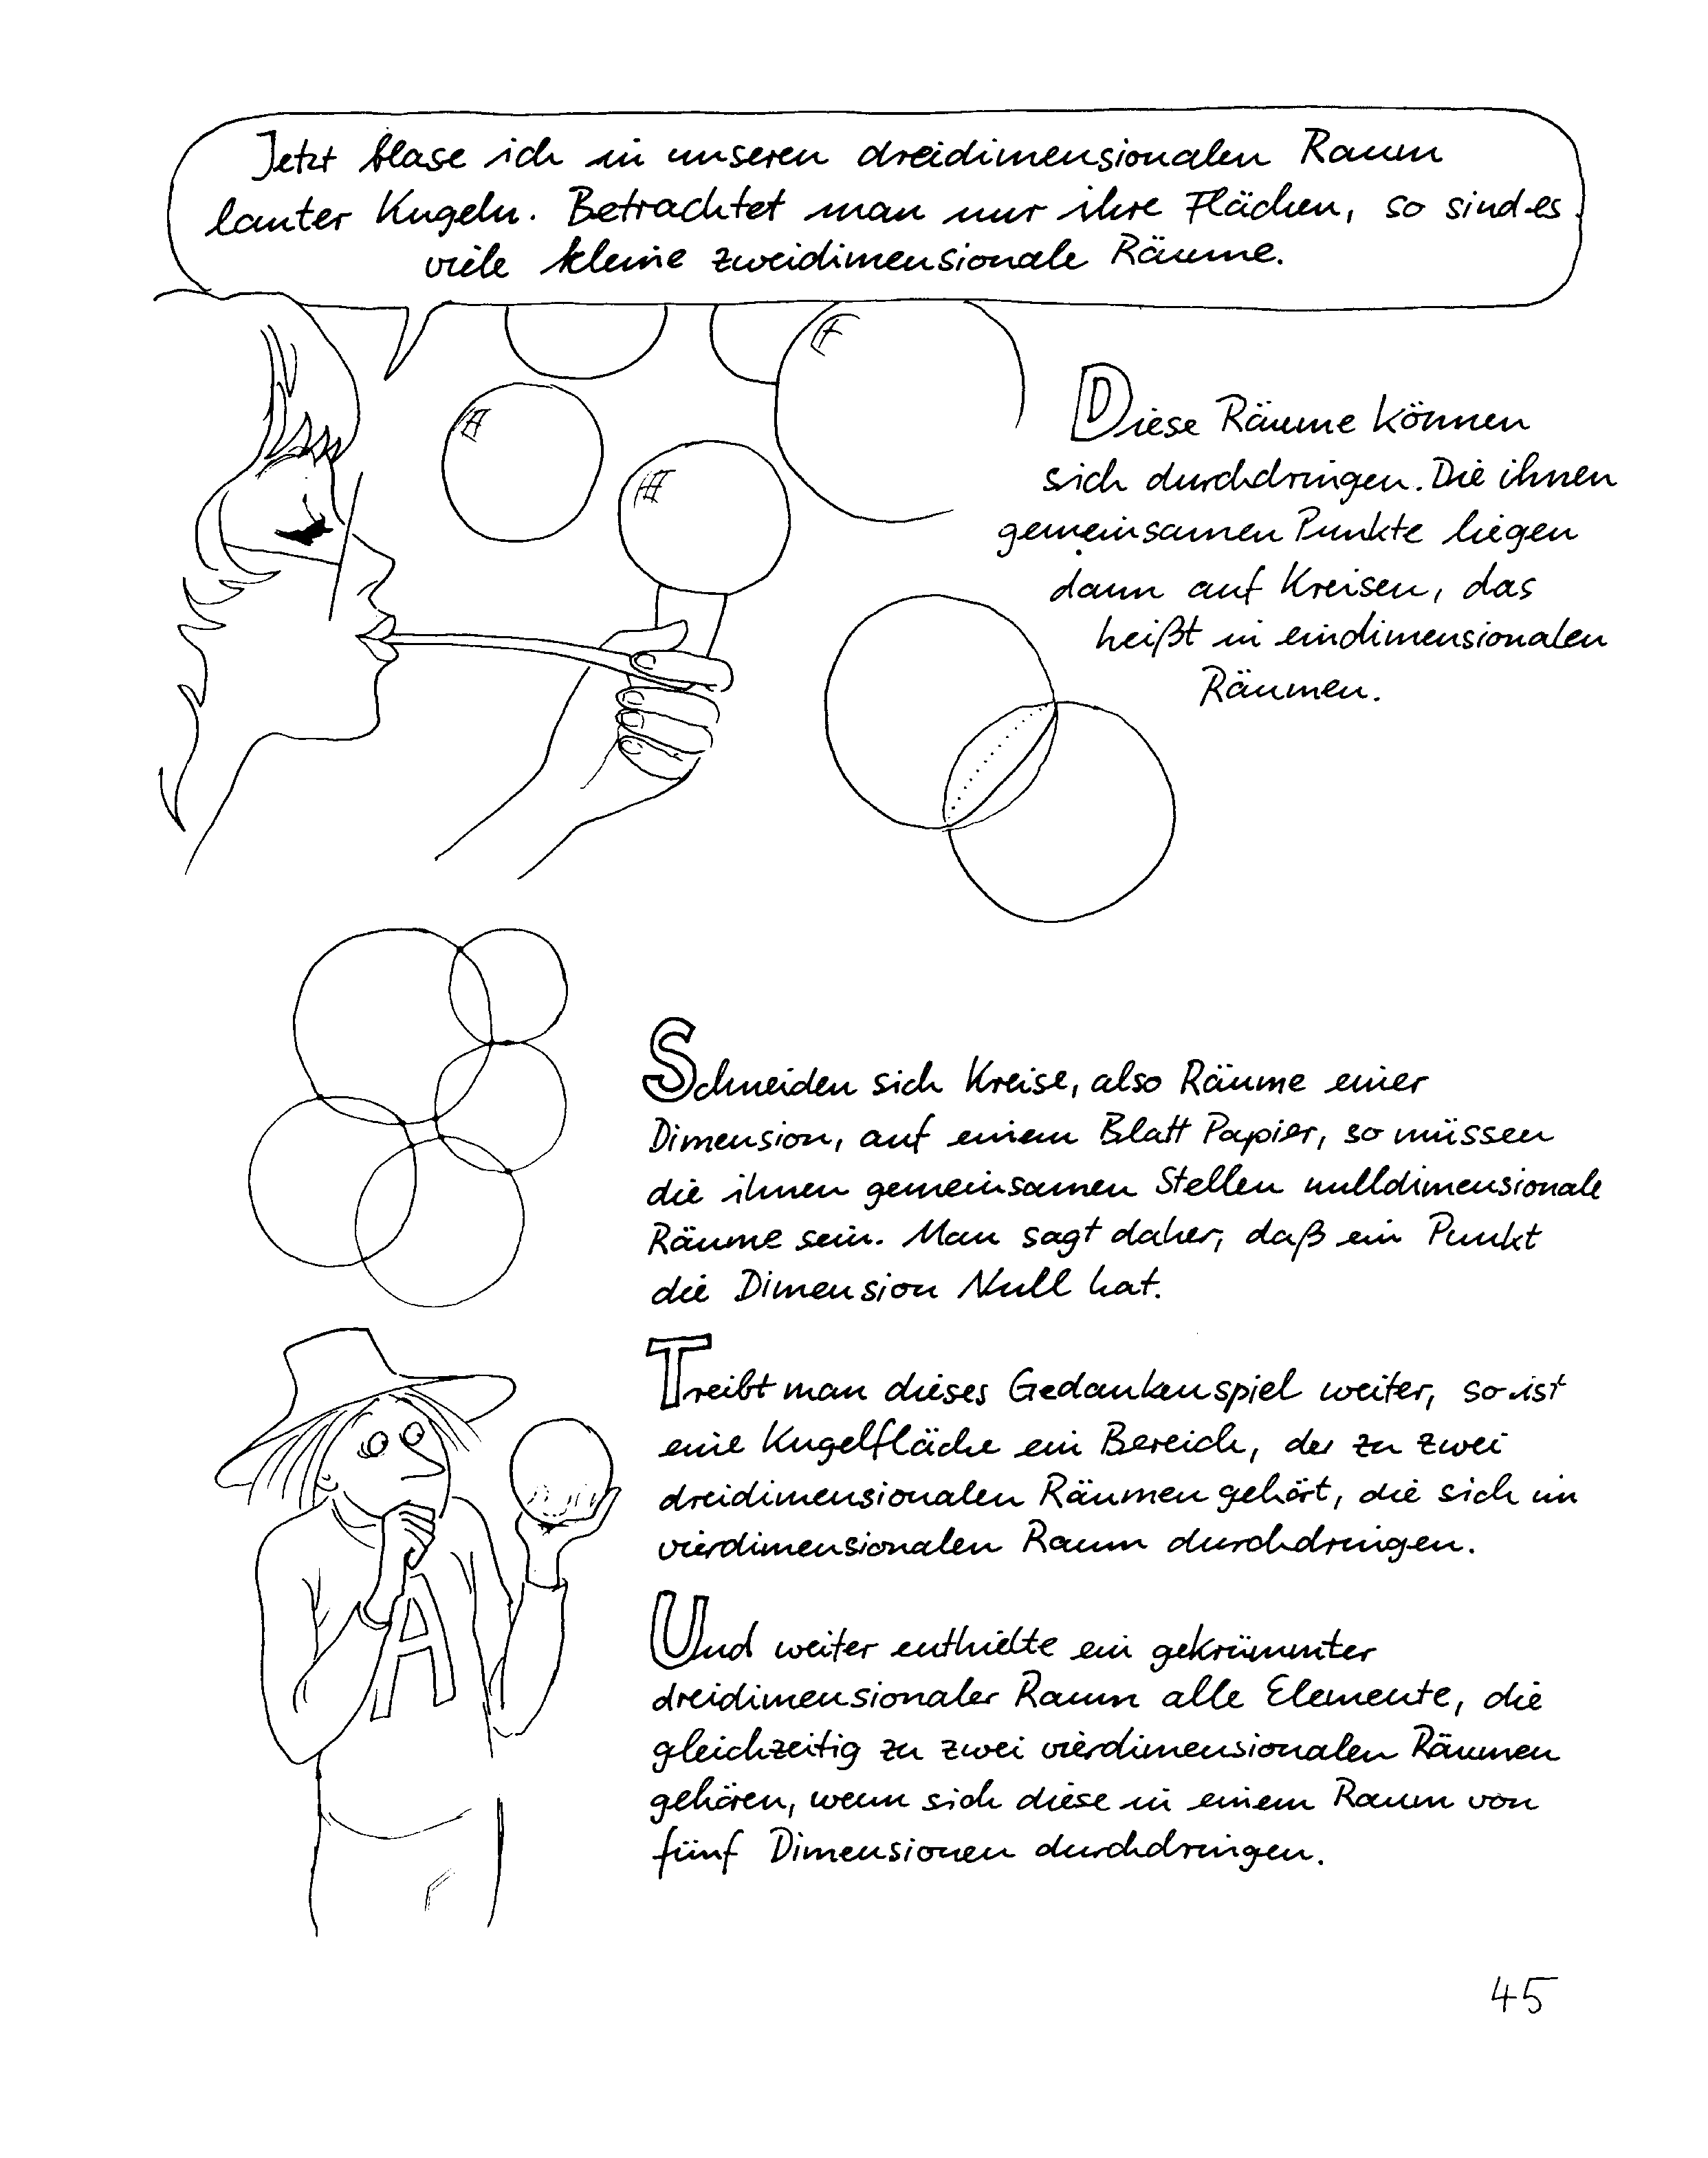 Jetzt blase ich in unseren dreidimensionalen Raum
lauter Kugeln. Betrachtet man nur ihre Flächen, so sind es
viele kleine zweidimensionale Räume.
Diese Räume können
sich durchdringen. Die ihnen
gemeinsamen Punkte liegen
dann auf Kreisen, das
heißt in eindimensionalen
Räumen.
Schneiden sich Kreise, also Räume einer
Dimension, auf einem Blatt Papier, so müssen
die ihnen gemeinsamen Stellen nulldimensionale
Räume sein. Man sagt daher, daß ein Punkt
die Dimension Null hat.
Treibt man dieses Gedankenspiel weiter, so ist
eine Kugelfläche ein Bereich, der zu zwei
dreidimensionalen Räumen gehört, die sich im
vierdimensionalen Raum durchdringen.
A
Und weiter enthielte ein gekrümmter
dreidimensionaler Raum alle Elemente, die
gleichzeitig zu zwei vierdimensionalen Räumen
gehören, wenn sich diese in einem Raum von
fünf Dimensionen durchdringen.
45